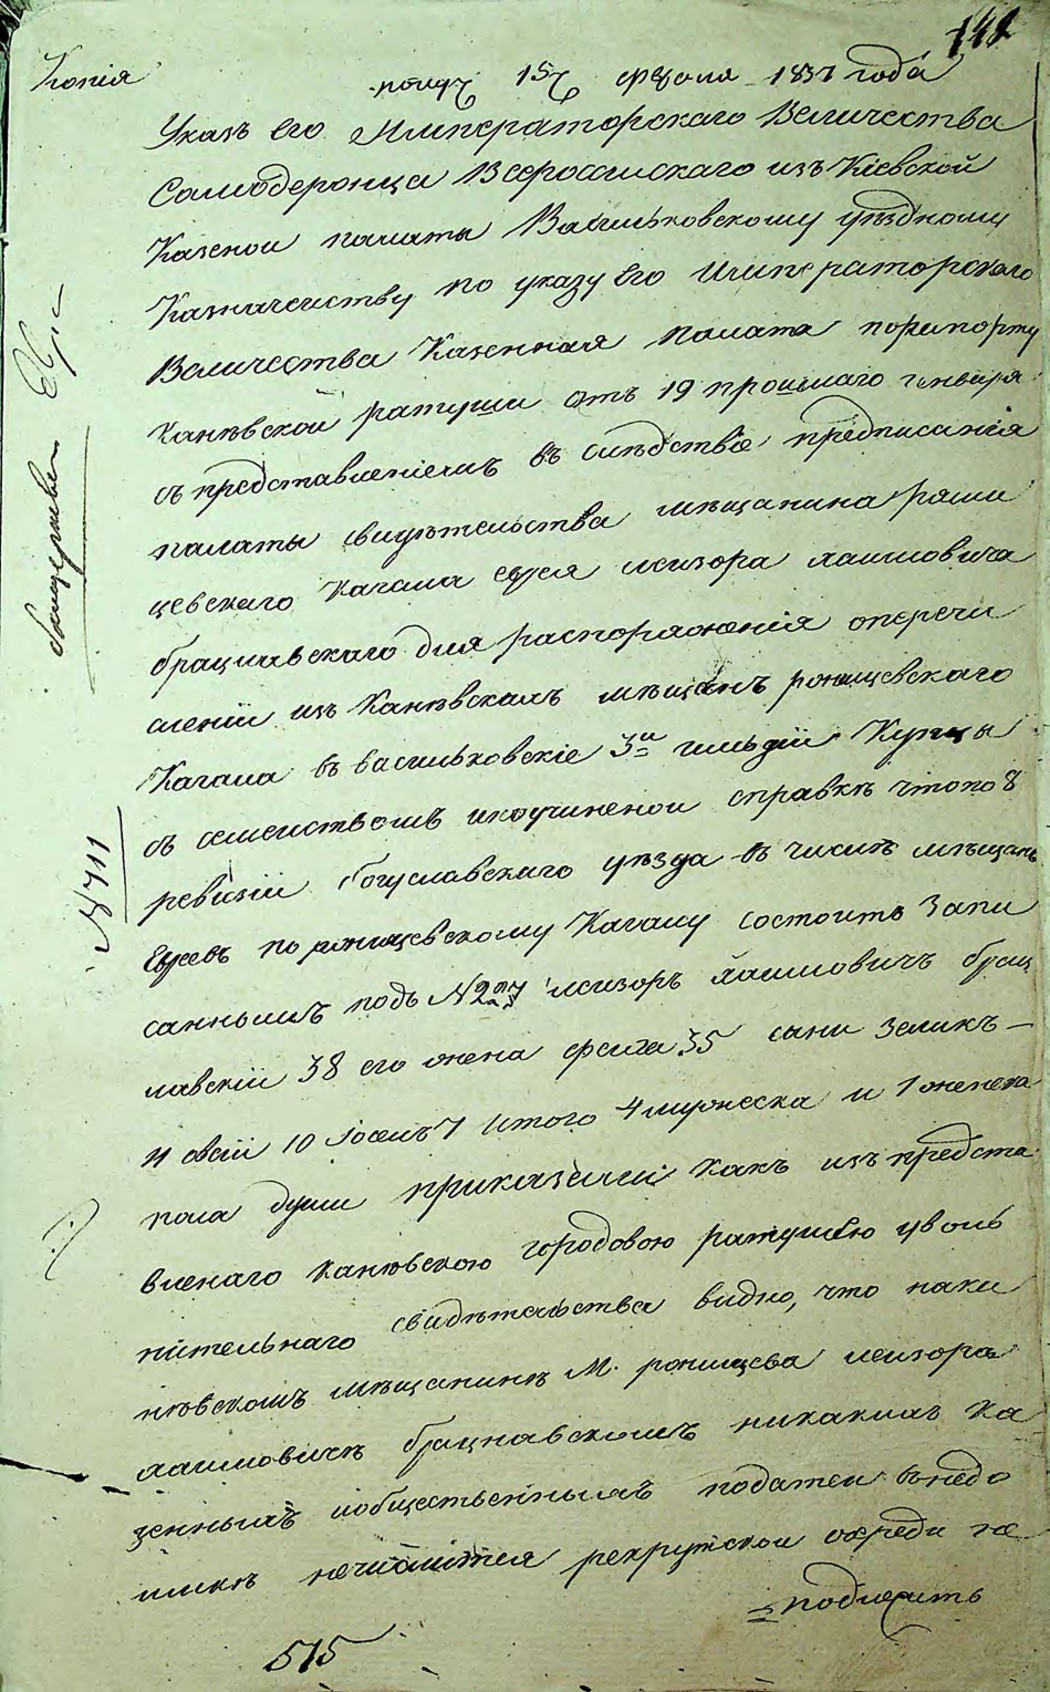 142
Копія
получ 15 февраля 1837 года
Указъ его Императорскаго Величества
Самодержца Всероссискаго изъ Кіевской
Казенои палаты Васильковскому уѣздному
Казначеиству по указу Его Императорскаго
Величества Казенная палата порапорту
Каневской ратуши отъ 19 прошлаго генваря
съ представленіемъ въ слѣдствіе предписанія
палаты свидѣтельства мѣщанина ржищевскаго
цевскаго Кагала еврея лейзора хаимовича
брацлавскаго для распоряженія оперечи
сленіи изъ Каневскихъ мѣщанъ ржищевскаго
Кагала въ васильковскіе 3й гильдіи Купцы
съ семеиствомъ ипоучиненои справкѣ чтопо 8
ревизіи богуславскаго уѣзда въ числѣ мѣщанъ
Евреевъ по ржищевскому Кагалу состоитъ Запи
саннымъ подъ № 227 лейзоръ хаимовичъ брац
лавскіи 38 его жена фейга 35 сыни Зеликъ —
11 овсіи 10 Іосиъ 7 итого 4 мужеска и 1 женска
пола души приказали: какъ изъ предста
вленаго каневскою городовою ратушею уволь
нительнаго свидѣтельства видно, что нака
невскомъ мѣщанинѣ М. ржищева лейзорѣ
хаимовичѣ брацлавскомъ никакихъ Ка
зенныхъ иобщественныхъ податеи внедо
имкѣ нечислится рекрутскои очереди не
подлежитъ
№ 711
515